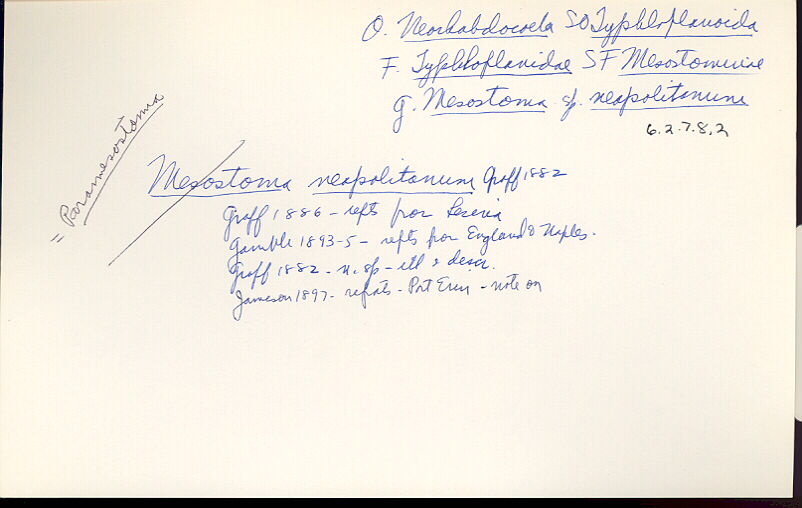 O. Neorhabdocoela SO Typhloplanoida
F. Typhloplanidae SF Mesostominae
g. Mesostoma sp. neapolitanum
6.2.7.8.2
= Paramesostoma
Mesostoma neapolitanum Graff 1882
Graff 1886 - repts from
Gamble 1893-5 - repts for England & Naples.
Graff 1882 - n. sp - ill & descr.
Jameson 1897 - repats - Port Erin - note on